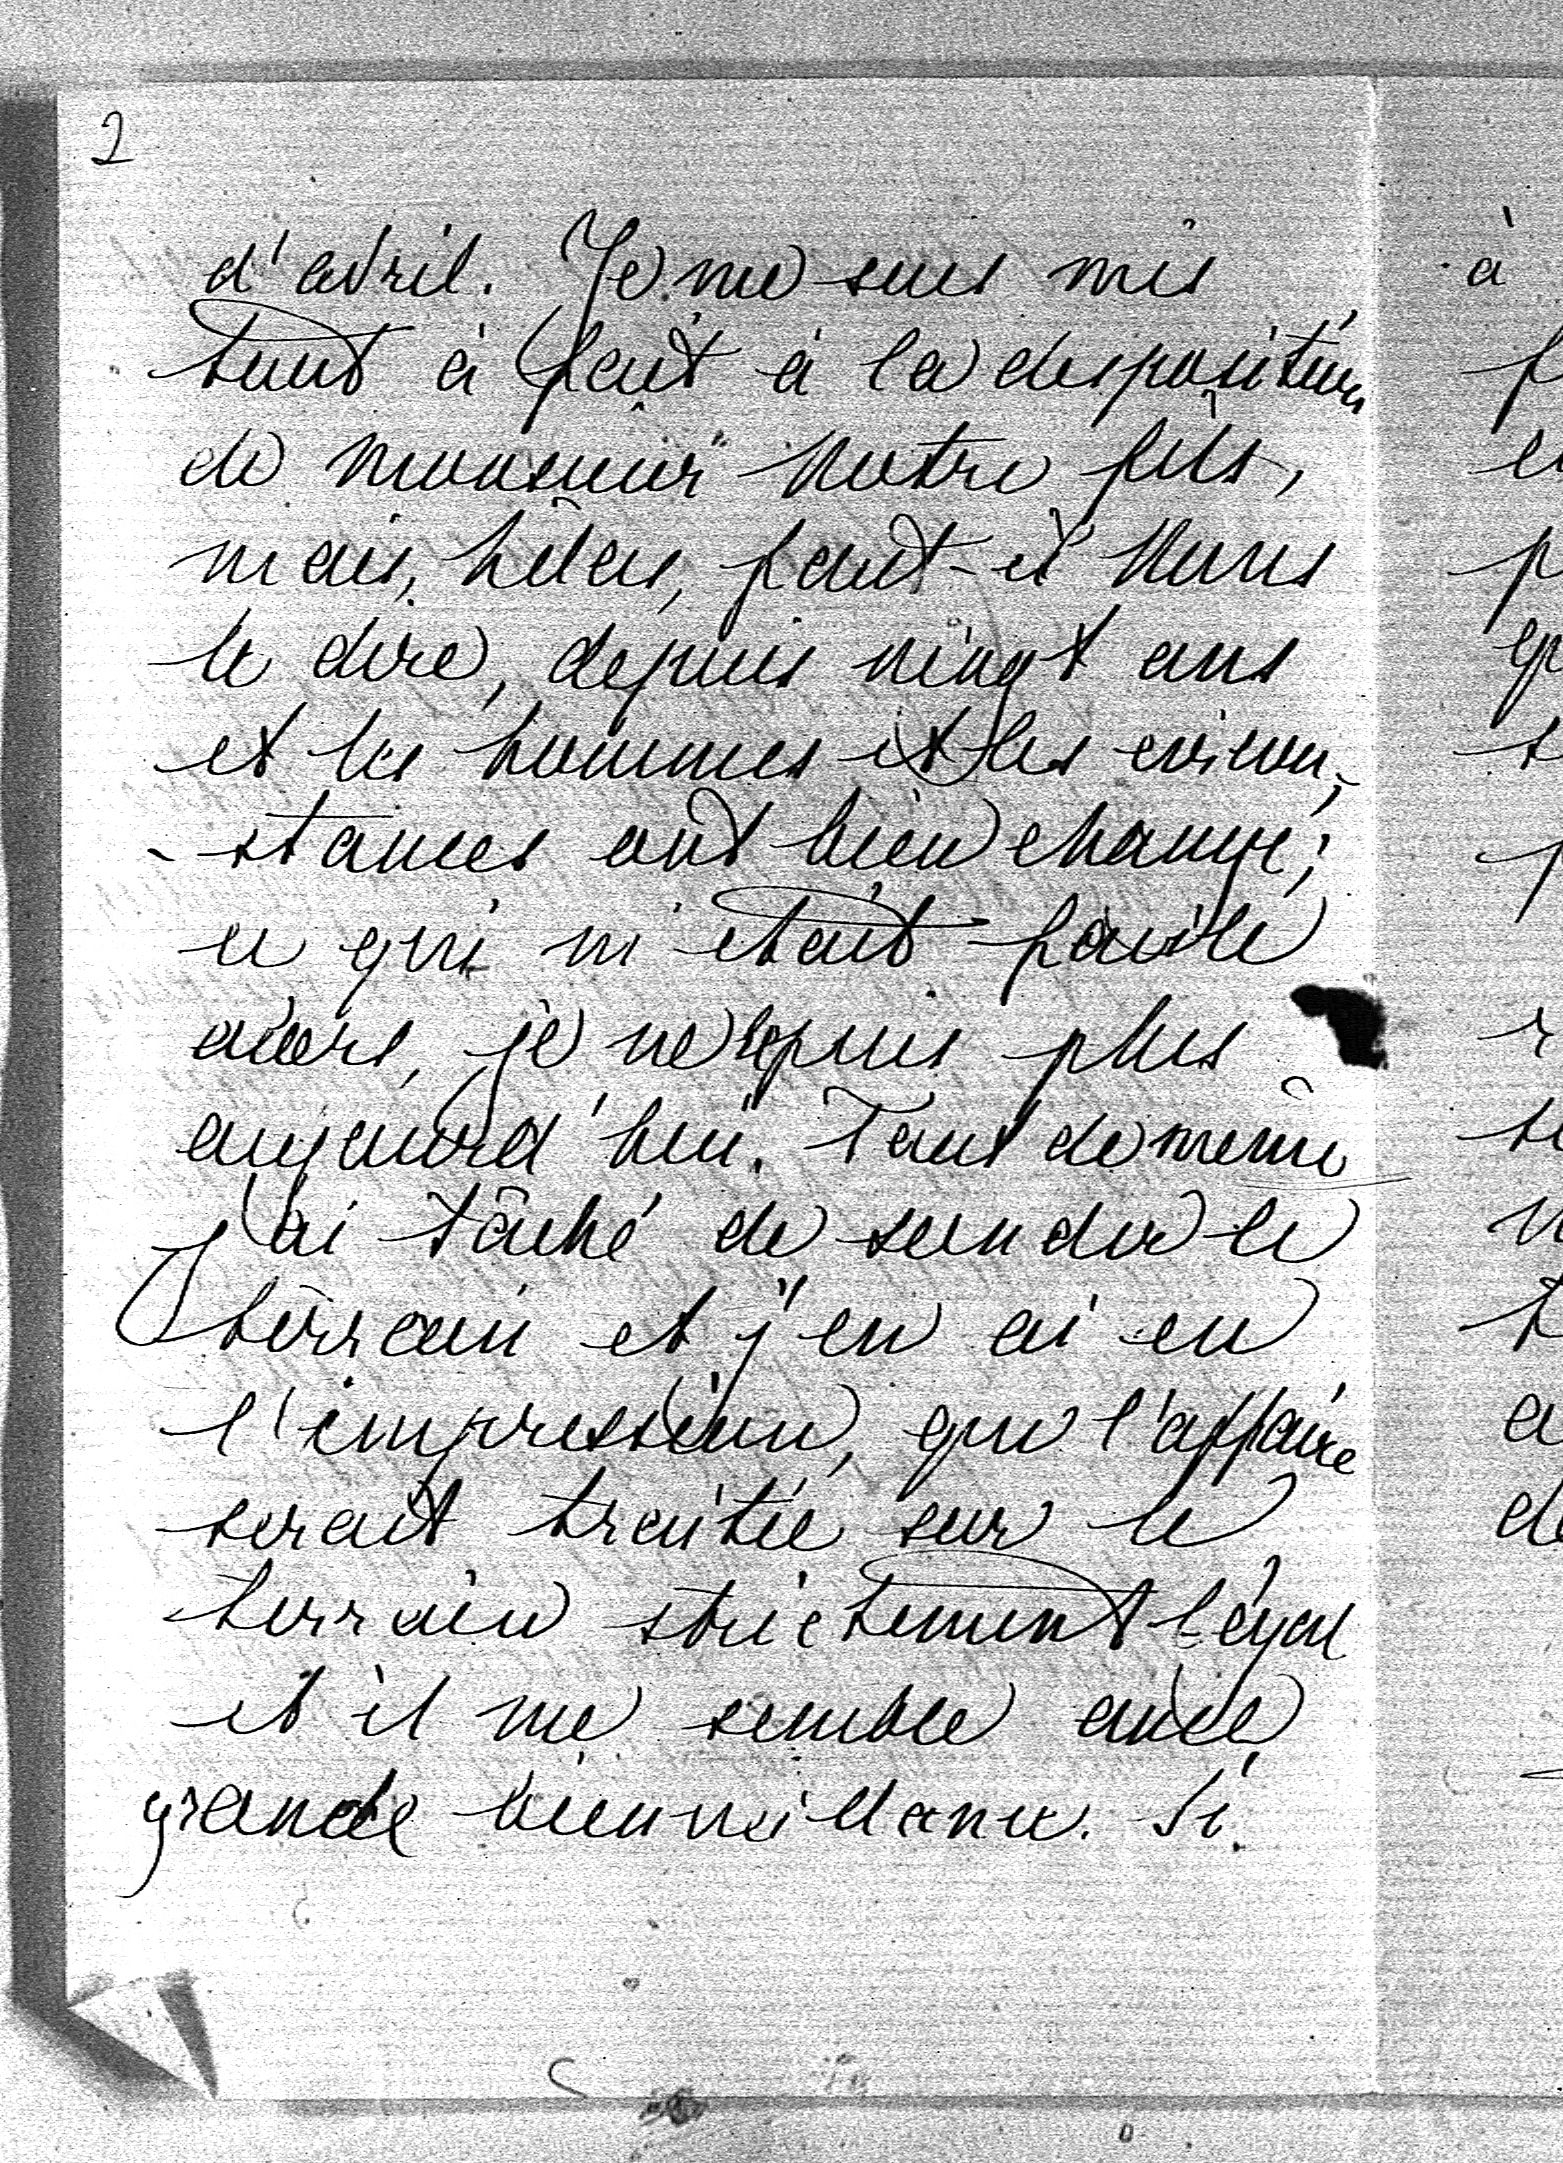 2
d'avril. Je me suis mis
tout à fait à la disposition
de monsieur Votre fils,
mais, hêlas, faut-il Vous
le dire, depuis vingt ans
et les hommes et les circon-
-stances ont bien changé;
ce qui m'était facile
alors, je ne le puis plus
aujourd'hui. Tout de même
j'ai tâché de sonder le
terrain et j'en ai eu
l'impression, que l'affaire
serait traitée sur le
terrain strictement légal
et il me semble avec
grande bienveillance. Si
à